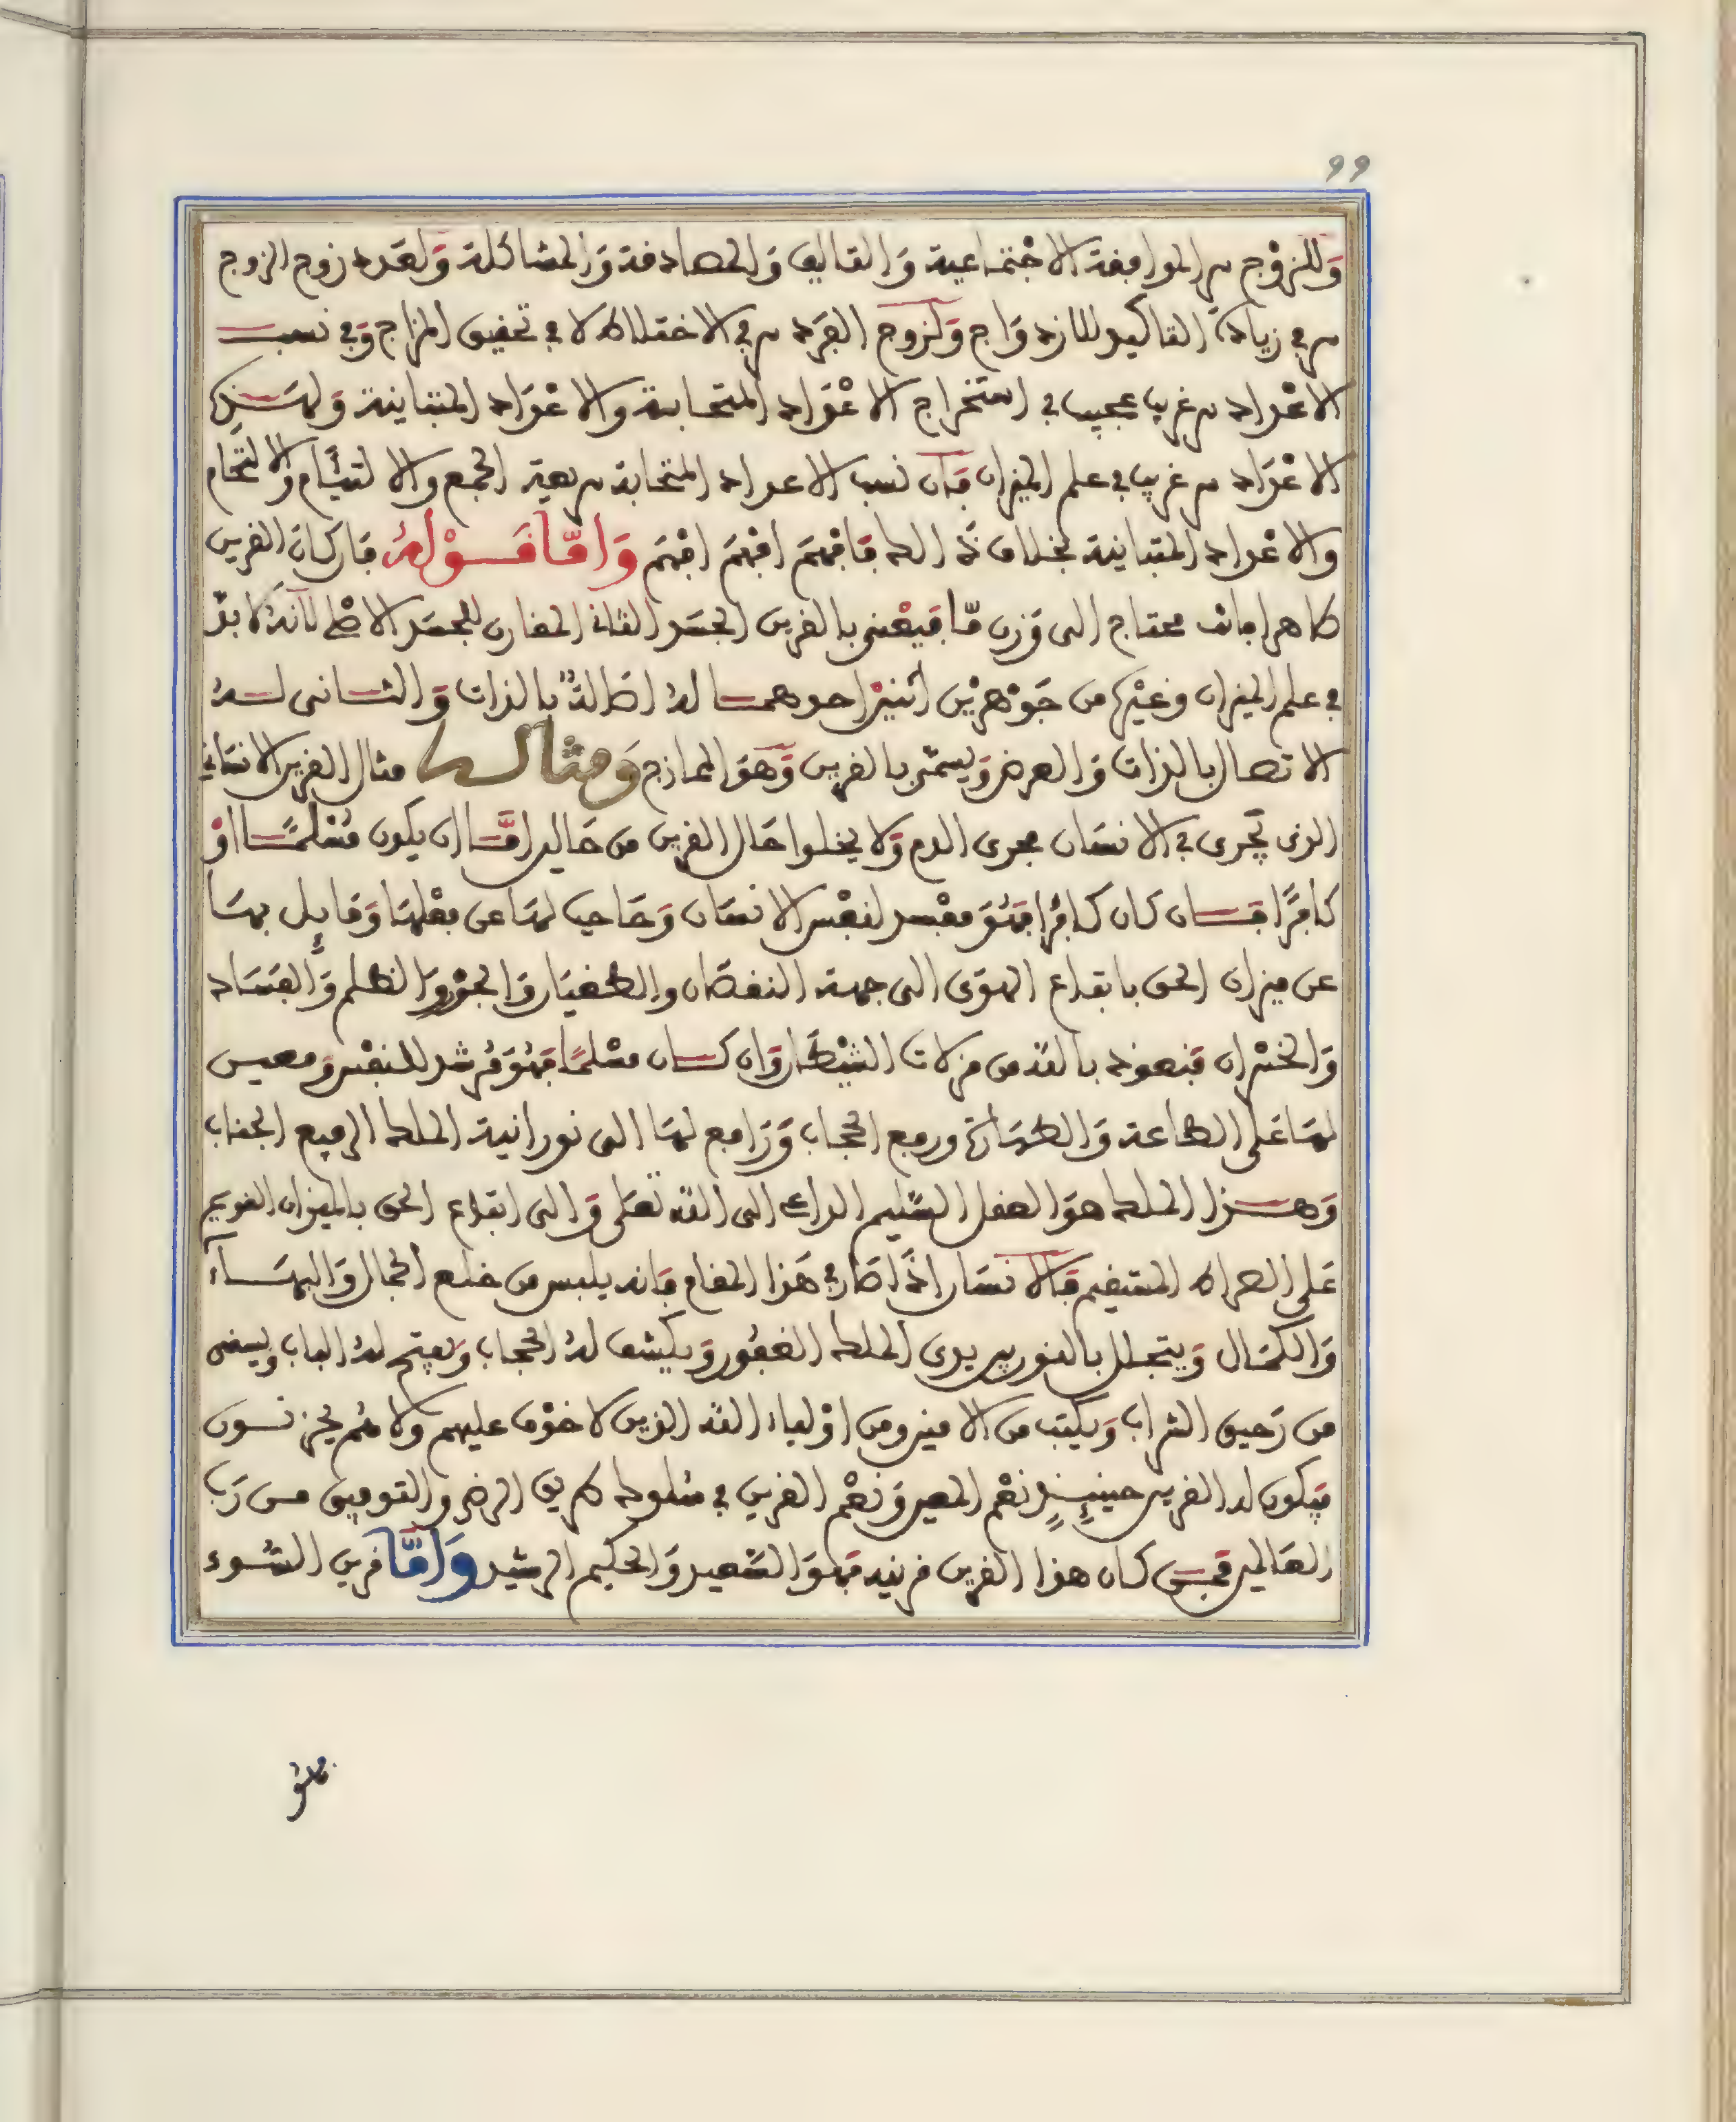 99
وَللزوْج سر الموافقة الاجْتماعية وَالتاليف وَالمصادفة وَالمشاكلة وَلعدد زوج الزوج
سر في زيادة التاكيد للازدوَاج وَلزوج الفرد سر في الاختلاط لا في تحقيق المزاج وَفي نسب
الاعْداد سر غريب عجيب في استخراج الاعْدَاد المتحابة والاعْدَاد المتباينة وَلهذه
الاعْدَاد سر غريب في علم الميزان فَان نسب الاعداد المتحابة سريعة الجمع والالتيَام والالتحام
والاعْداد المتباينة بخلاف ذَالك فَافهَم افهَم افهَم وَامّا قَوْلهُ فَان كان القرين
طاهرا فانت محتاج الى وَزن مّا فَيعْنى بالقرين الجسَد الثانى المقارن للجسَد الاصْلى لانهُ لا بدّ
في علم الميزان وغيْره من جَوْهرَيْن اثنيْن احدهما لهُ اصَالةٌ بالذات وَالثانى لهُ
الاتصال بالذات وَالعرض وَيسمّى بالقرين وَهوَ الممازج وَمثال ما مثال القرين الانسَانى
الذى يَجرى في الانسَان مجرى الدم وَلا يخلوا حَال القرين من حَالين امَّا ان يكون مُسْلمًا اوْ
كافرًا فَان كان كافرًا فَهُوَ مفْسد لنفْس الانسَان وَحَاجب لهَا عن فعْلهَا وَمَايل بهَا
عن ميزان الحق باتباع الهوَى الى جهة النقصَان والطغيَان وَالجوْر وَالظلم وَالفسَاد
وَالخسْران فَنعوذ بالله من مزلات الشيْطَان وَان كان مسْلمًا فَهُوَ مُرشد للنفْس وَمعين
لهَا عَلى الطاعة وَالطهَارة ورفع الحجاب وَرَافع لهَا الى نورانية الملك الرفيع الجناب
وَهذا الملك هوَ العقل السّليم الداعى الى الله تعَلى وَالى اتباع الحق بالميزان القويم
عَلى الصراط المستقيم فَالانسَان اذَا صَار في هَذا المقام فَانه يلبس من خلع الجمال وَالبهَاء
وَالكمَال وَيتجلل بالنور بين يدى الملك الغفُور وَيكشف لهُ الحجاب وَيفتح لهُ الباب ويسقى
من رَحيق الشراب وَيكتب من الامنين ومن اوْلياء الله الذين لا خوْف عليهم ولا هُم يحزنون
فيَكون له القرين حينئذٍ نعْم المعين وَنعْم القرين في سُلوك طريق الرضى والتوفيق من رَب
العَالمين فمن كان هذا القرين قرينه فَهوَ السّعيد وَالحكيم الرشيد وَامَّا قرين السُّوء